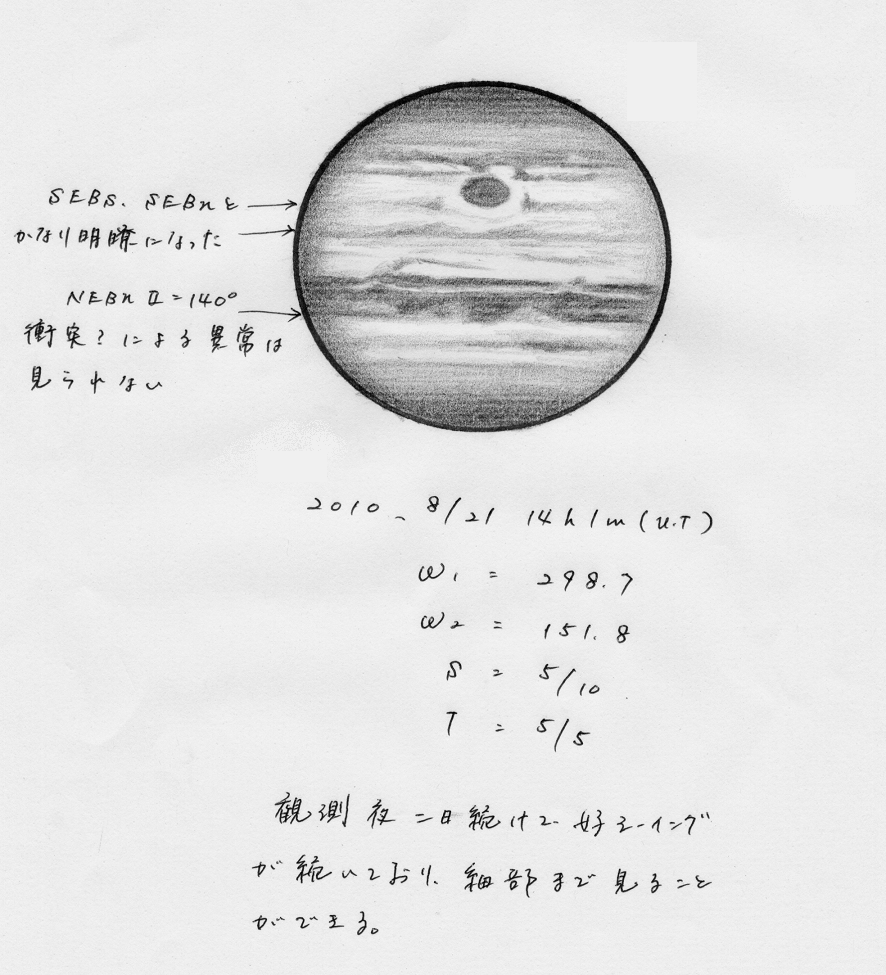 SEBs、SEBnと
かなり明瞭になった
NEBn II=140°
衝突?による異常は
見られない
2010、8/21 14h1m(U.T)
ω1 = 298.7
ω2 = 151.8
S = 5/10
T = 5/5
観測夜二日続けて好シーイング
が続いており、細部まで見ること
ができる。